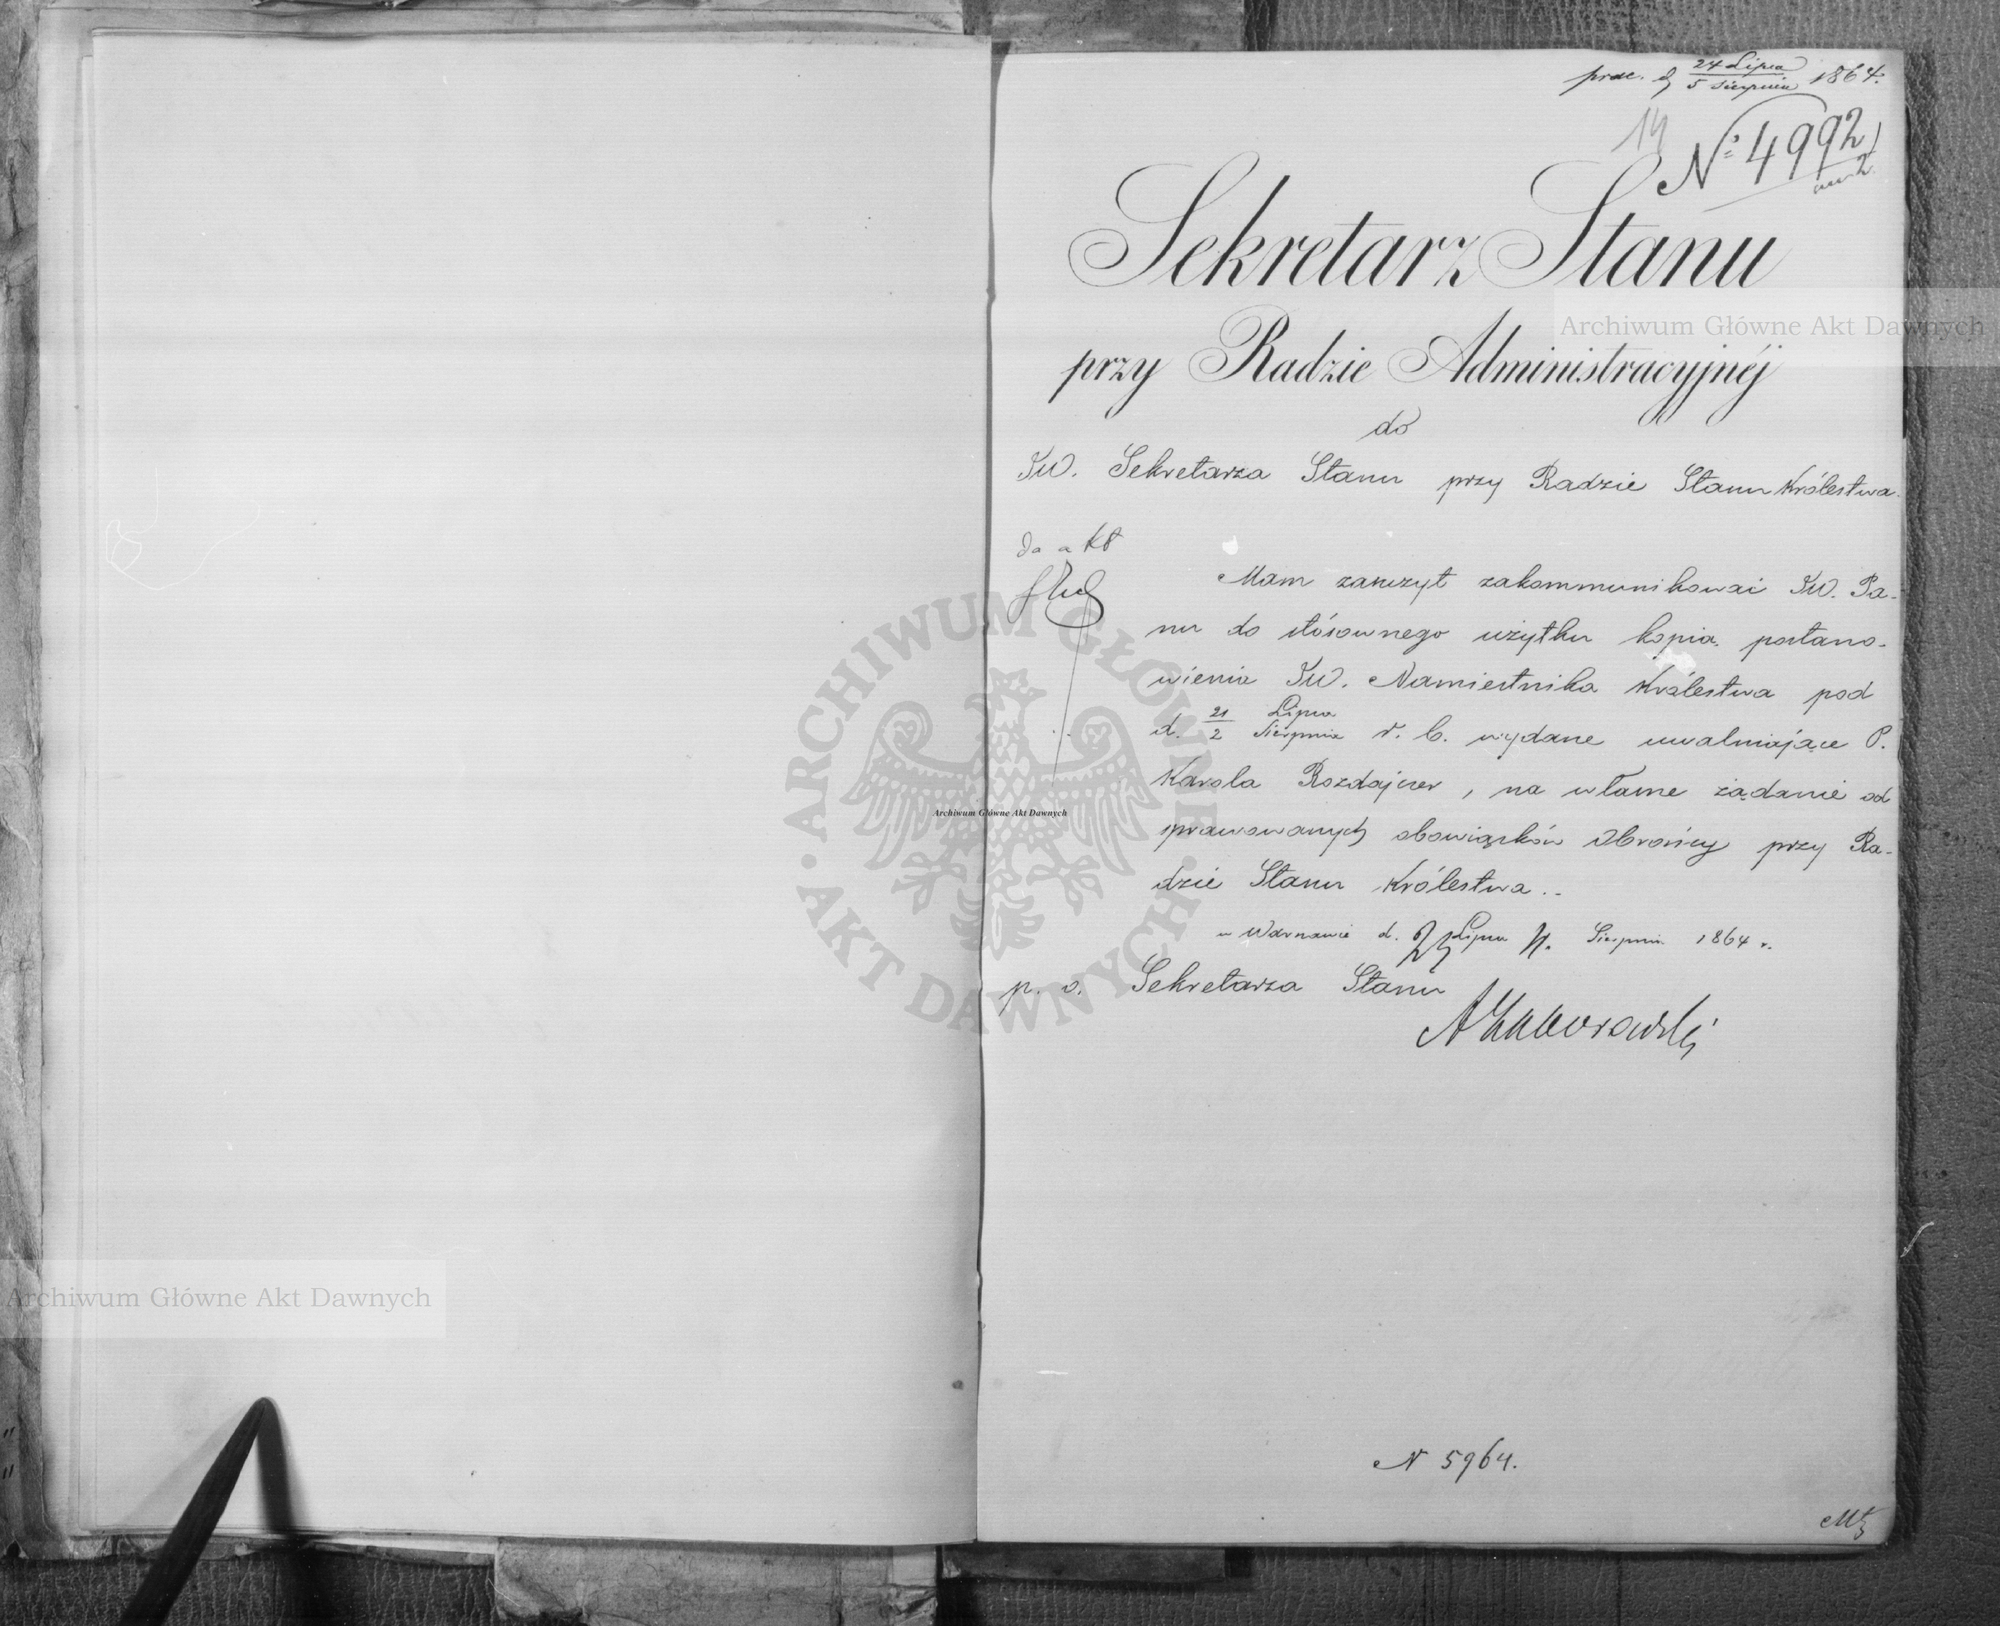 24 Lipca
5 Sierpnia 1864.
14
№ 4992
Sekretarz Stanu
przy Radzie Administracyjnéj
do
JW. Sekretarza Stanu przy Radzie Stanu Królestwa.
Do akt
Mam zaszczyt zakommunikować JW. Pa-
nu do stósownego użytku kopią postano-
wienia JW. Namiestnika Królestwa pod
d. 21/2 Lipca/Sierpnia r. b. wydane uwalniające P.
Karola Rozdajczer, na własne żądanie od
sprawowanych obowiązków Obrońcy przy Ra-
dzie Stanu Królestwa.
w Warszawie d. 23 Lipca 4. Sierpnia 1864 r.
p. o. Sekretarza Stanu
AZaborowski
N 5964.
Archiwum Główne Akt Dawnych
Archiwum Główne Akt Dawnych
Archiwum Główne Akt Dawnych
ARCHIWUM GŁÓWNE AKT DAWNYCH